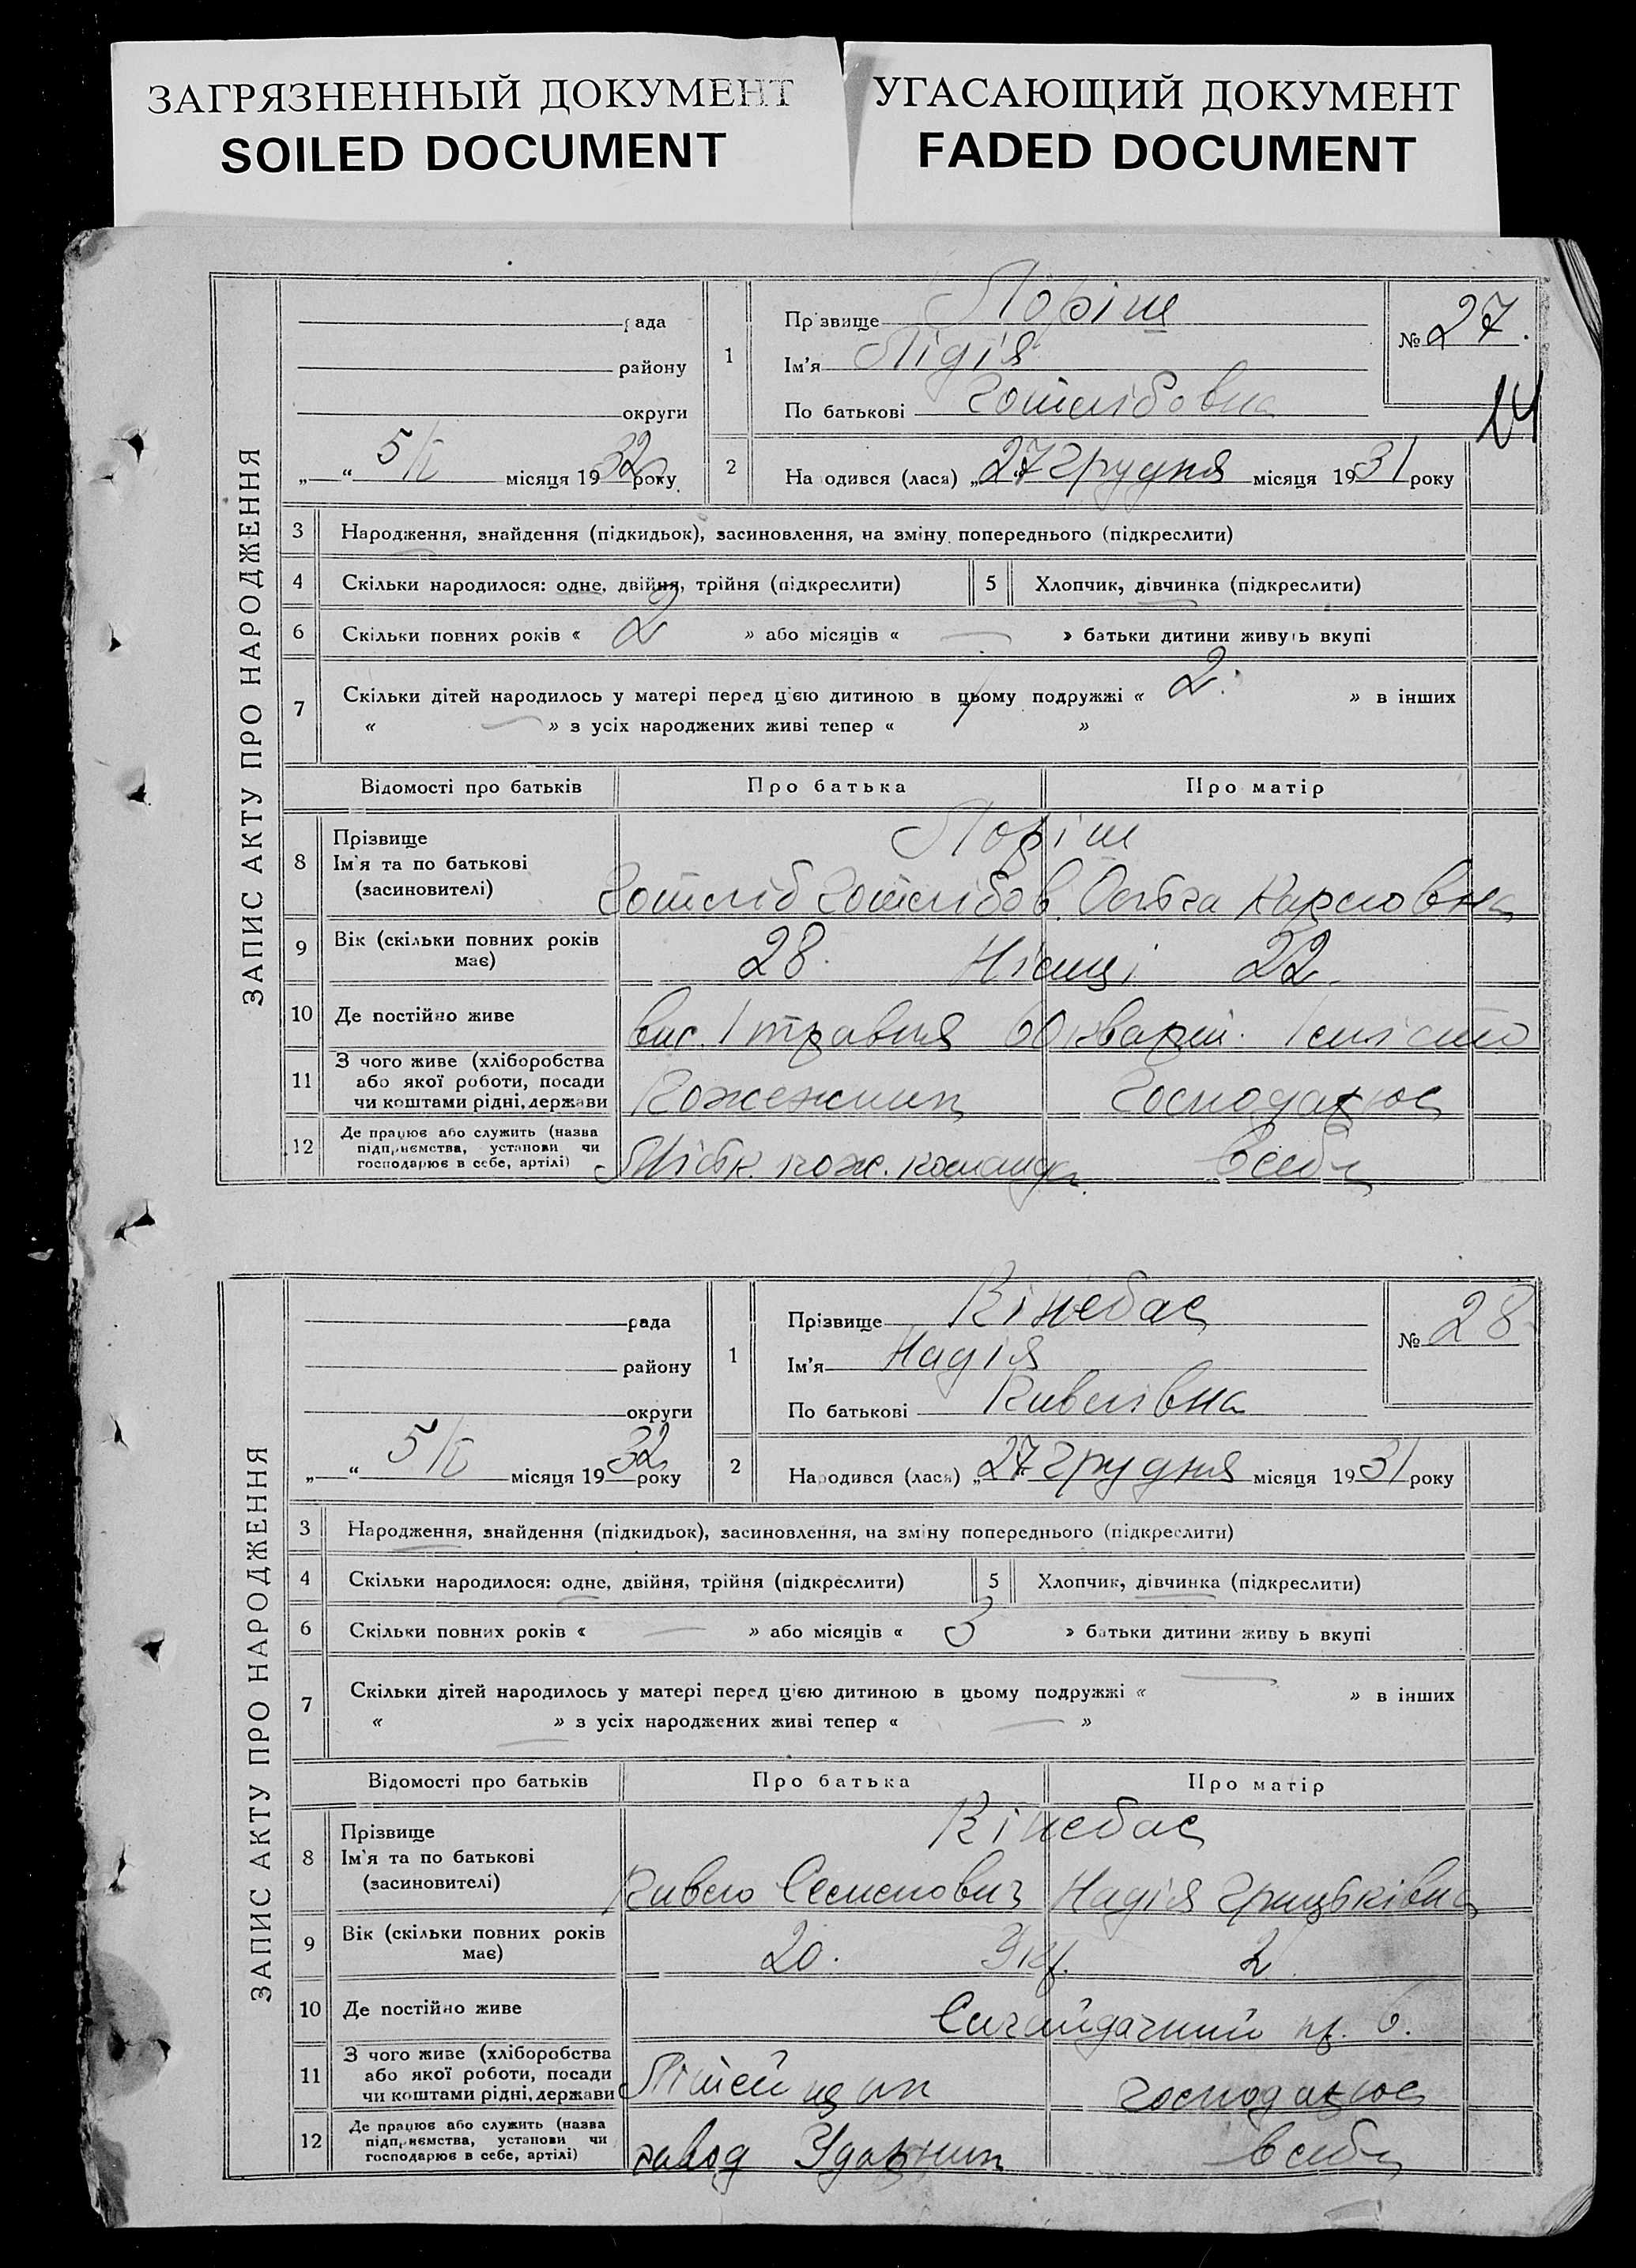 ЗАГРЯЗНЕННЫЙ ДОКУМЕНТ
SOILED DOCUMENT
УГАСАЮЩИЙ ДОКУМЕНТ
FADED DOCUMENT
ЗАПИС АКТУ ПРО НАРОДЖЕННЯ
рада
району
округи
„ “ 5/І місяця 1932 року
1
Прізвище Лоріш
Ім'я Лідія
По батькові Готлібовна
№ 27.
14
2
Народився (лася) „27 грудня місяця 1931 року
3 Народження, знайдення (підкидьок), засиновлення, на зміну попереднього (підкреслити)
4 Скільки народилося: одне, двійня, трійня (підкреслити)
5 Хлопчик, дівчинка (підкреслити)
6 Скільки повних років « 2 » або місяців « — » батьки дитини живуть вкупі
7 Скільки дітей народилось у матері перед цією дитиною в цьому подружжі « 2. » в інших
« — » з усіх народжених живі тепер « »
Відомості про батьків Про батька Про матір
8 Прізвище
Ім'я та по батькові
(засиновителі)
Лоріш
Готліб Готлібов. Ольга Карловна
9 Вік (скільки повних років
має)
28. Німці 22.
10 Де постійно живе
вис. 1 травня 60 кварт.
11 З чого живе (хліборобства
або якої роботи, посади
чи коштами рідні, держави
Пожежник Господарює
12 Де працює або служить (назва
підприємства, установи чи
господарює в себе, артілі)
Міськ. пож. команда
в себе
ЗАПИС АКТУ ПРО НАРОДЖЕННЯ
рада
району
округи
„ “ 5/І місяця 1932 року
1
Прізвище Кінебас
Ім'я Надія
По батькові Павлівна
№ 28
2
Народився (лася) „27 грудня місяця 1931 року
3 Народження, знайдення (підкидьок), засиновлення, на зміну попереднього (підкреслити)
4 Скільки народилося: одне, двійня, трійня (підкреслити)
5 Хлопчик, дівчинка (підкреслити)
6 Скільки повних років « — » або місяців « 3 » батьки дитини живуть вкупі
7 Скільки дітей народилось у матері перед цією дитиною в цьому подружжі « — » в інших
« — » з усіх народжених живі тепер « — »
Відомості про батьків Про батька Про матір
8 Прізвище
Ім'я та по батькові
(засиновителі)
Кінебас
Павло Семенович Надія Грицьківна
9 Вік (скільки повних років
має)
20. Укр.
10 Де постійно живе
Сагайдачний пр. 6.
11 З чого живе (хліборобства
або якої роботи, посади
чи коштами рідні, держави
Літейщик господарює
12 Де працює або служить (назва
підприємства, установи чи
господарює в себе, артілі)
завод Ударник
в себе